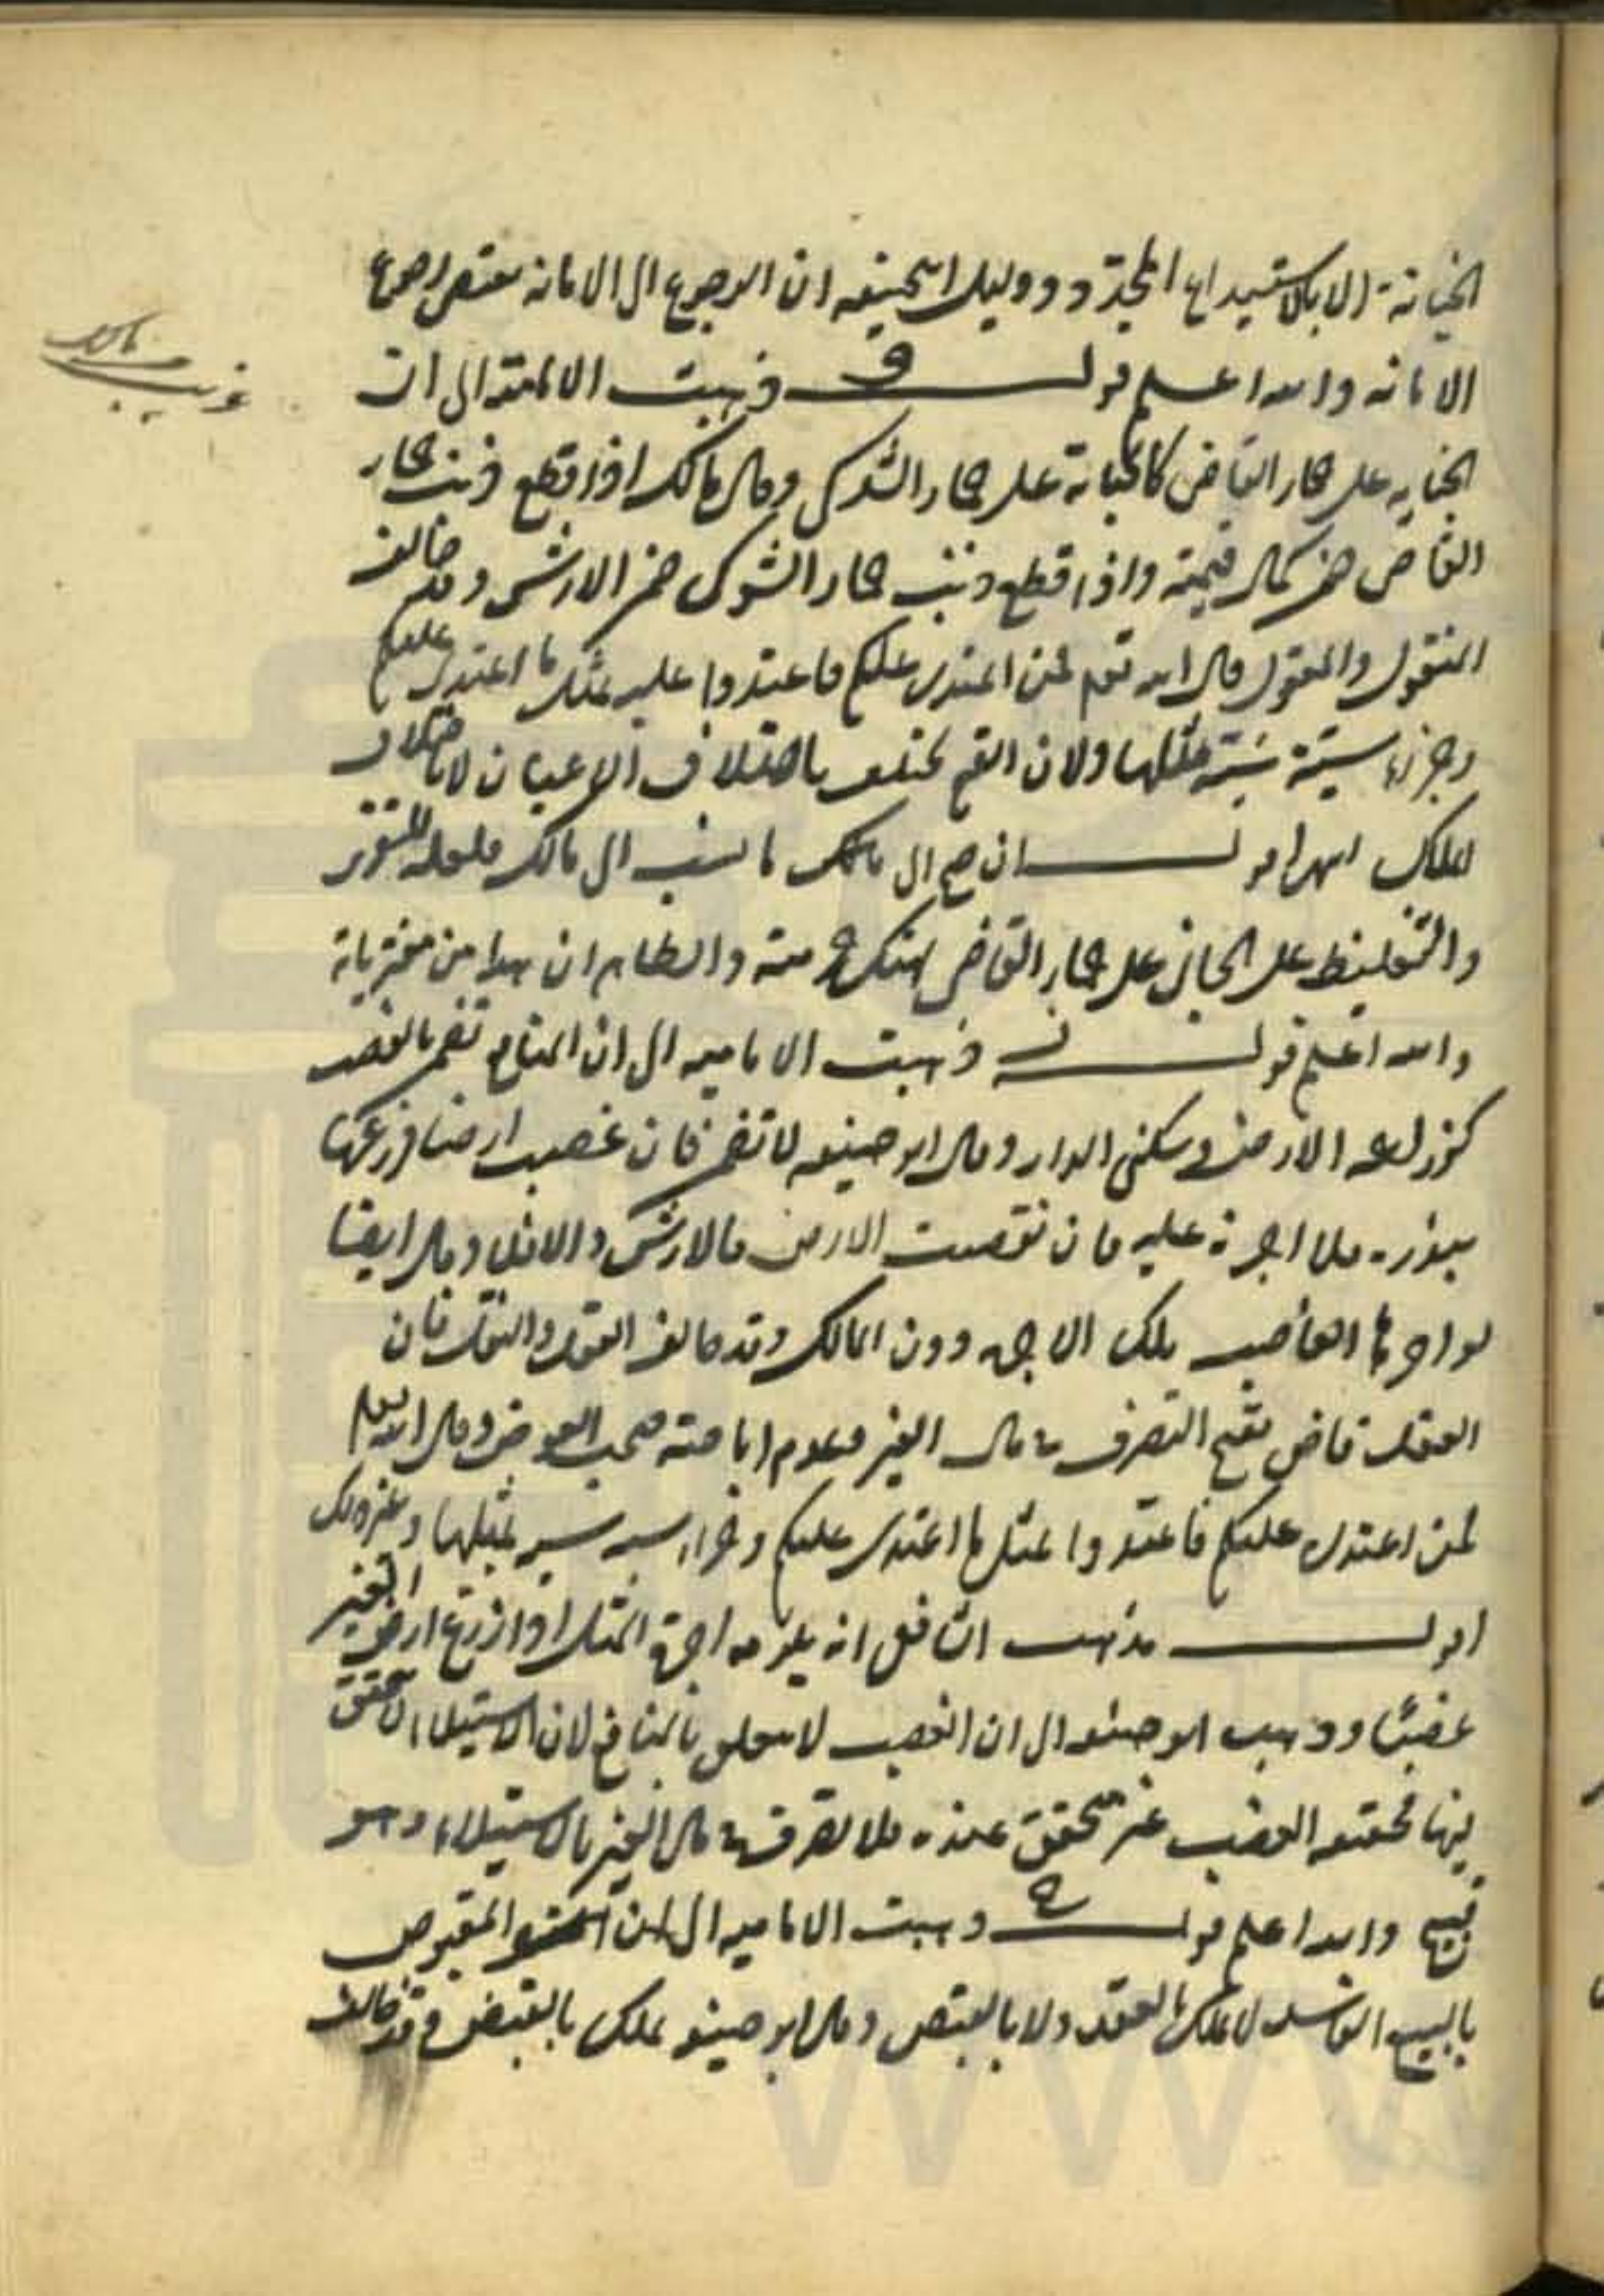 الخيانة الا بالاستيداع المجدد ودليل ابيحنيفه ان الرجوع الى الامانه مقتض لرجوع
الامانه والله اعلم قوله و ذهبت الاماميه الى ان
الجنايه على حمار القاضى كالجناية على حمار الشوكى وقال مالك اذا قطع ذنب حمار
القاضى ضمن كمال قيمته واذا قطع ذنب حمار الشوكى ضمن الارش وقد خالف
المنقول والمعقول قال الله تعم فمن اعتدى عليكم فاعتدوا عليه بمثل ما اعتدى عليكم
وجزاء سيئة سيئة مثلها ولان القيم تختلف باختلاف الاعيان لا باختلاف
الملاك انتهى اقول ان صح الى مالك ما نسب الى مالك فلعله للتعزير
والتغليظ على الجانى على حمار القاضى لهتك حرمته والظاهر ان هذا من مفترياته
والله اعلم قوله ز ذهبت الاماميه الى ان المنافع تضمن بالغصب
كزراعه الارض وسكنى الدار وقال ابو حنيفه لا تضمن فان غصب ارضا فزرعها
ببذره فلا اجرة عليه فان نقصت الارض فالارش والا فلا وقال ايضا
لو اجرها الغاصب ملك الاجره دون المالك وقد خالف العقل والنقل فان
العقل قاض بقبح التصرف فى مال الغير وعدم اباحته بغير العوض وقال الله تعم
فمن اعتدى عليكم فاعتدوا بمثل ما اعتدى عليكم وجزاء سيئه سيئه بمثلها وغير ذلك
اقول مذهب الشافعى انه يلزمه اجرة المثل اذا زرع ارض الغير
غصبًا وذهب ابو حنيفه الى ان الغصب لا يتعلق بالمنافع لان الاستيلاء لا يتحقق
فيها فحقيقه الغصب غير متحقق عنده فلا تصرف فى مال الغير بالاستيلاء وهو
قبيح والله اعلم قوله ح ذهبت الاماميه الى ان المقبوض
بالبيع الفاسد لا يملك بالعقد ولا بالقبض وقال ابو حنيفه يملك بالقبض وقد خالف
مالك
غريب